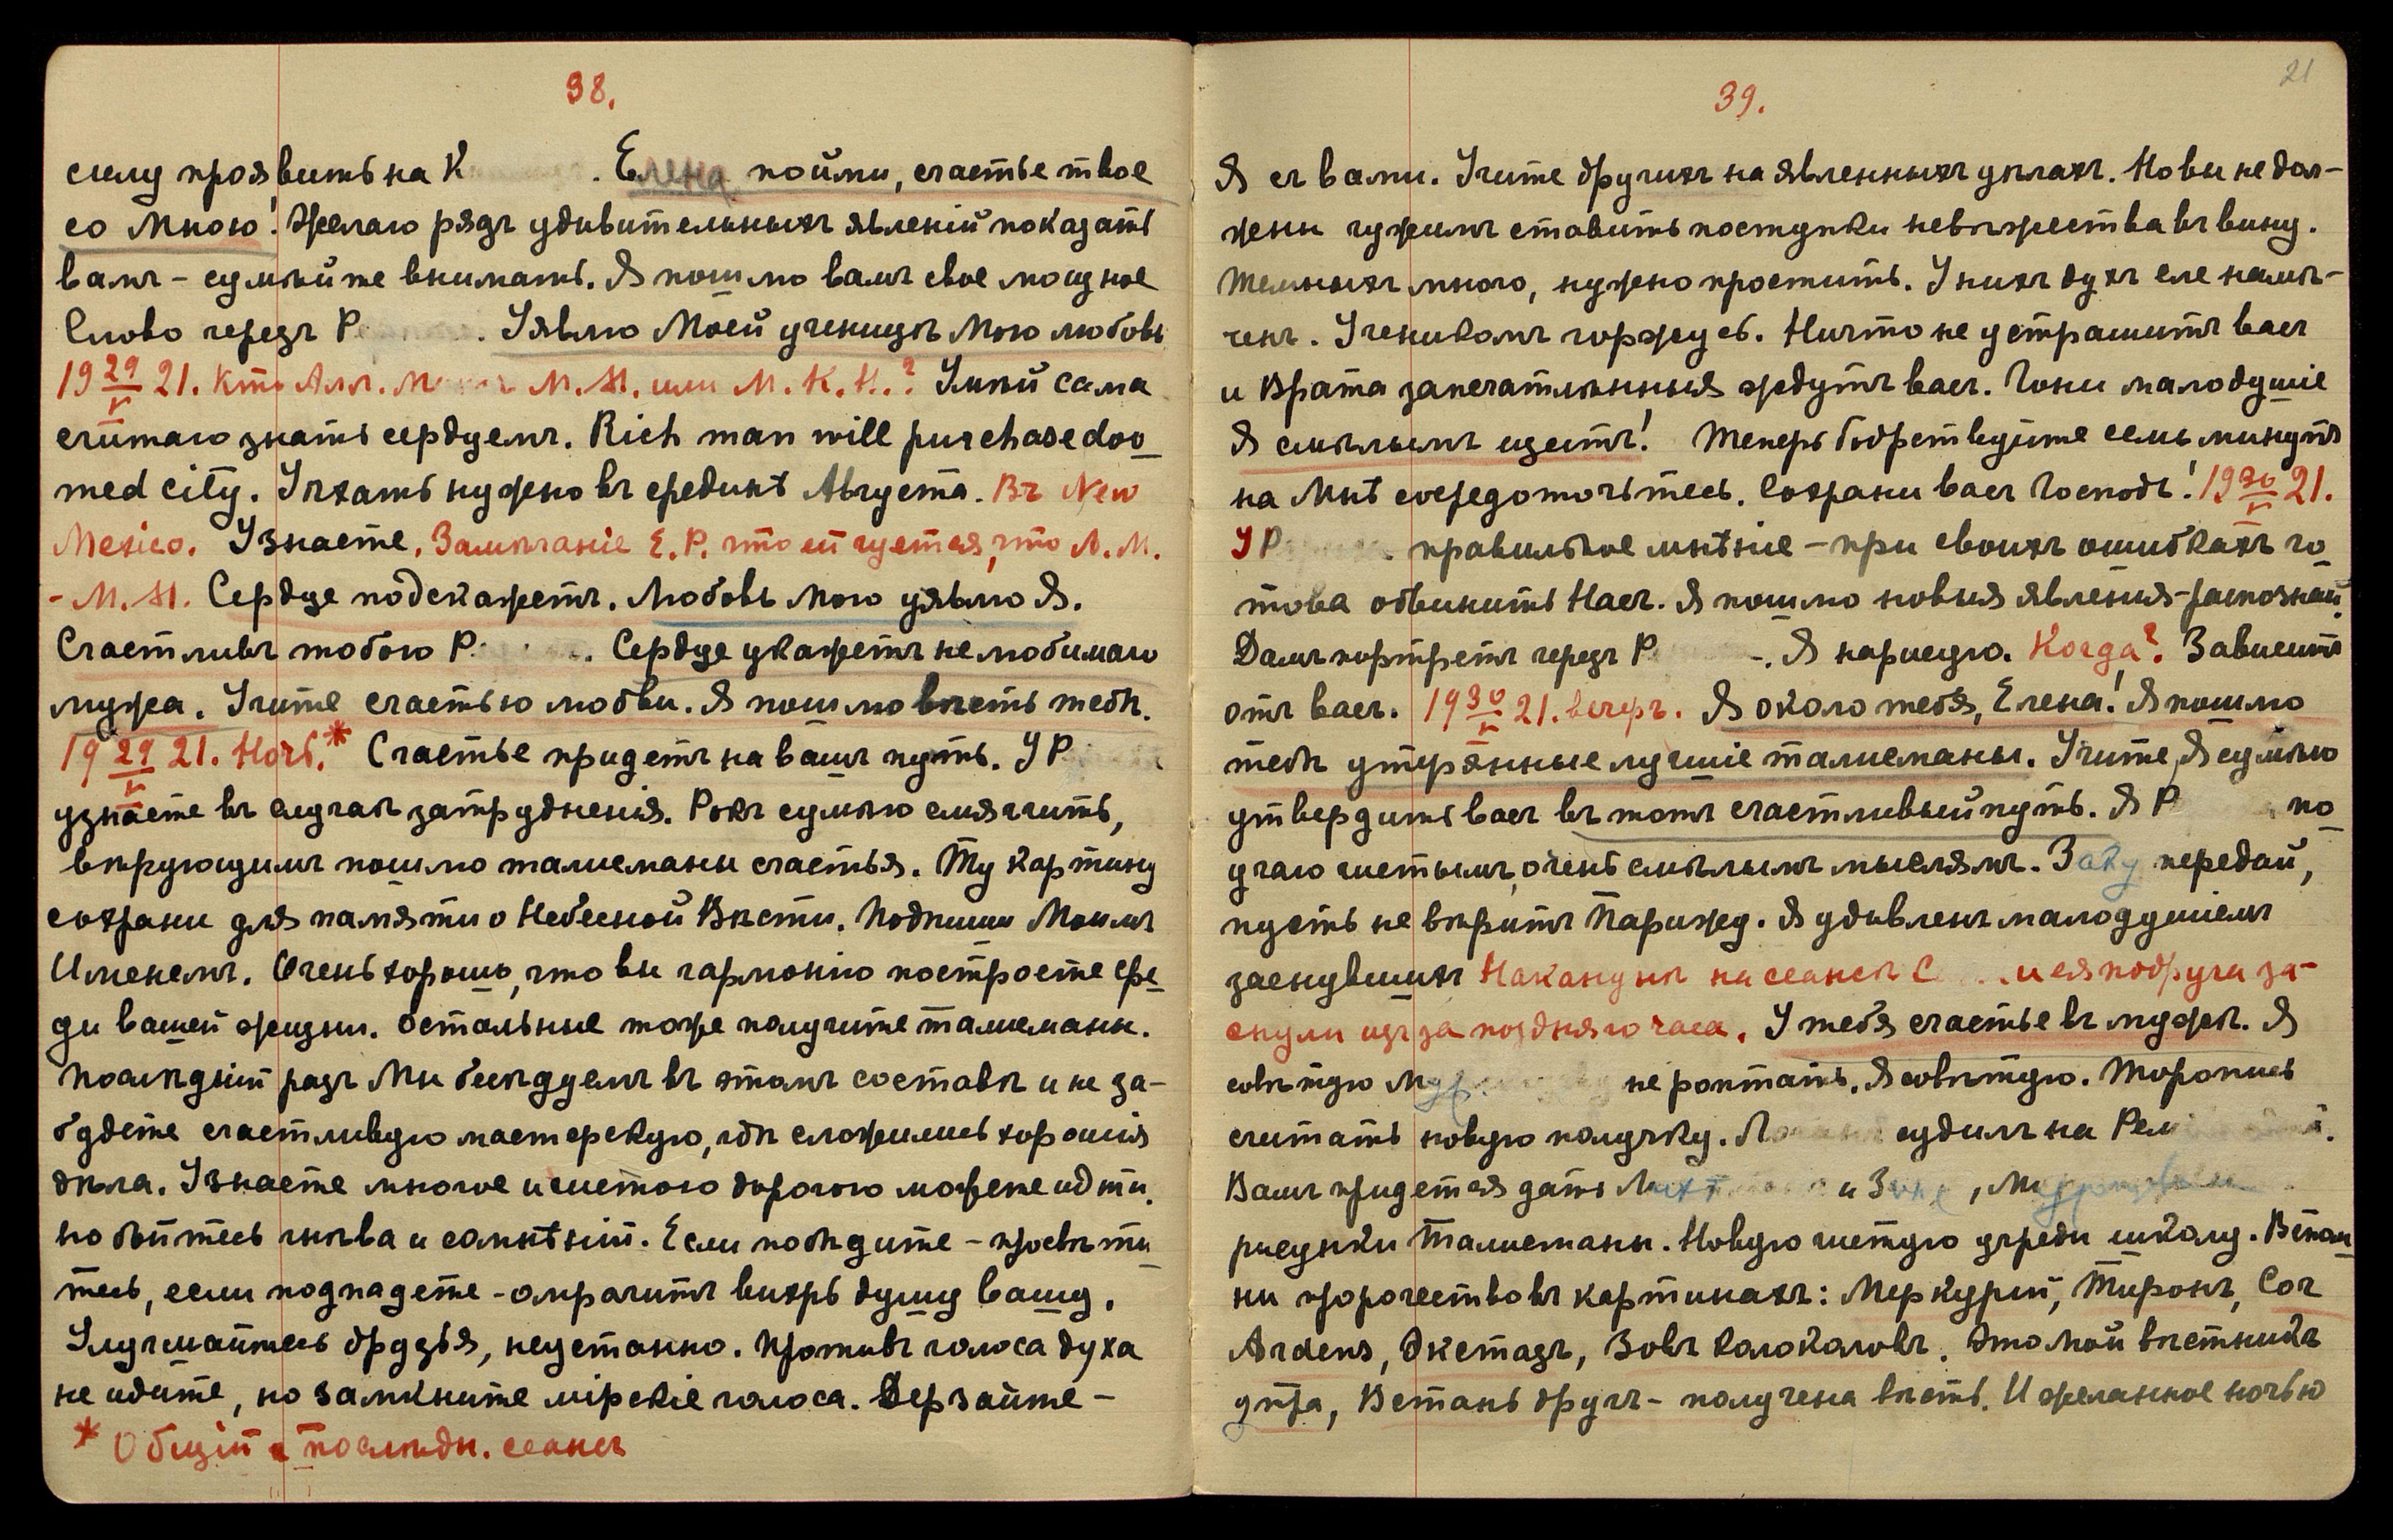 38.
силу проявить на К . Елена пойми, счастье твое
со Мною! Желаю рядъ удивительныхъ явленій показать
вамъ – сумѣйте внимать. Я пошлю вамъ свое мощное
Слово черезъ Р . Уявлю Моей ученицѣ Мою любовь
19 29/V 21. Кто Алл. М М. Я. или М. К. Н.? Умѣй сама
считаю знать сердцемъ. Rich man will purchase doo
med city. Уѣхать нужно въ срединѣ Августа. Въ New
Mexico. Узнаете. Замѣчаніе Е. Р. что ей чуется, что А. М.
- М. Я. Сердце подскажетъ. Любовь мою уявлю Я.
Счастливъ тобою Р . Сердце укажетъ нелюбимаго
мужа. Учите счастью любви. Я пошлю вѣсть тебѣ.
19 29/V 21. Ночь.* Счастье придетъ на вашъ путь. У Р
узнаете въ случаѣ затрудненія. Рокъ сумѣю смягчить,
вѣрующимъ пошлю талисманы счастья. Ту картину
сохрани для памяти о Небесной Вѣсти. Подпиши Моимъ
Именемъ. Очень хорошо, что вы гармонію построете сре
ди вашей жизни. Остальные тоже получите талисманы.
Послѣдній разъ Мы бесѣдуемъ въ этомъ составѣ и не за-
будете счастливую мастерскую, гдѣ сложились хорошія
дѣла. Узнаете многое и чистою дорогою можете идти.
но бойтесь гнѣва и сомнѣній. Если побѣдите – просвѣти
тесь, если подпадете – омрачитъ вихрь душу вашу.
Улучшайтесь друзья, неустанно. Противъ голоса духа
не идите, но замкните мірскіе голоса. Дерзайте –
* Общій и послѣдн. сеансъ
21
39.
Я съ вами. Учите другихъ на явленныхъ чудахъ. Но вы не дол-
жны чужимъ ставить поступки невѣжества въ вину.
Темныхъ много, нужно простить. У нихъ духъ еле намѣ-
ченъ. Ученикомъ горжусь. Ничто не устрашитъ васъ
и Врата запечатлѣнныя ждутъ васъ. Гони малодушіе
Я смѣлымъ щитъ! Теперь бодрствуйте семь минутъ
на Мнѣ сосредоточьтесь. Сохрани васъ Господь! 19 30/V 21.
У Р . правильное мнѣніе – при своихъ ошибкахъ го
това обвинить Насъ. Я пошлю новыя явления – распознай.
Дамъ портретъ черезъ Р -. Я нарисую. Когда? Зависитъ
отъ васъ. 19 30/V 21. вечеръ. Я около тебя, Елена! Я пошлю
тебѣ утерянные лучшіе талисманы. Учите, Я сумѣю
утвердить васъ въ тотъ счастливый путь. Я Р по
учаю чистымъ, очень смѣлымъ мыслямъ. передай,
пусть не вѣритъ Парижу. Я удивленъ малодушіемъ
заснувшихъ Наканунѣ на сеансѣ С и ея подруга за-
снули изъ за поздняго часа. У тебя счастье въ мужѣ. Я
совѣтую не роптать. Я совѣтую. Торопись
считать новую получку. судилъ на Рем
Вамъ придется дать и ,
рисунки Талисманы. Новую чистую учреди школу. Вспом
ни пророчество въ картинахъ: Меркурій, Тиронъ, Cor
Ardens, Экстазъ, Зовъ Колоколовъ. Это мой вѣстникъ
утра, Встань другъ – получена вѣсть. И желанное ночью